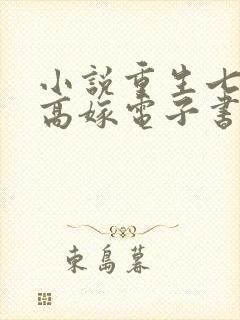 小説重生七
高嫁電子書
東島暮